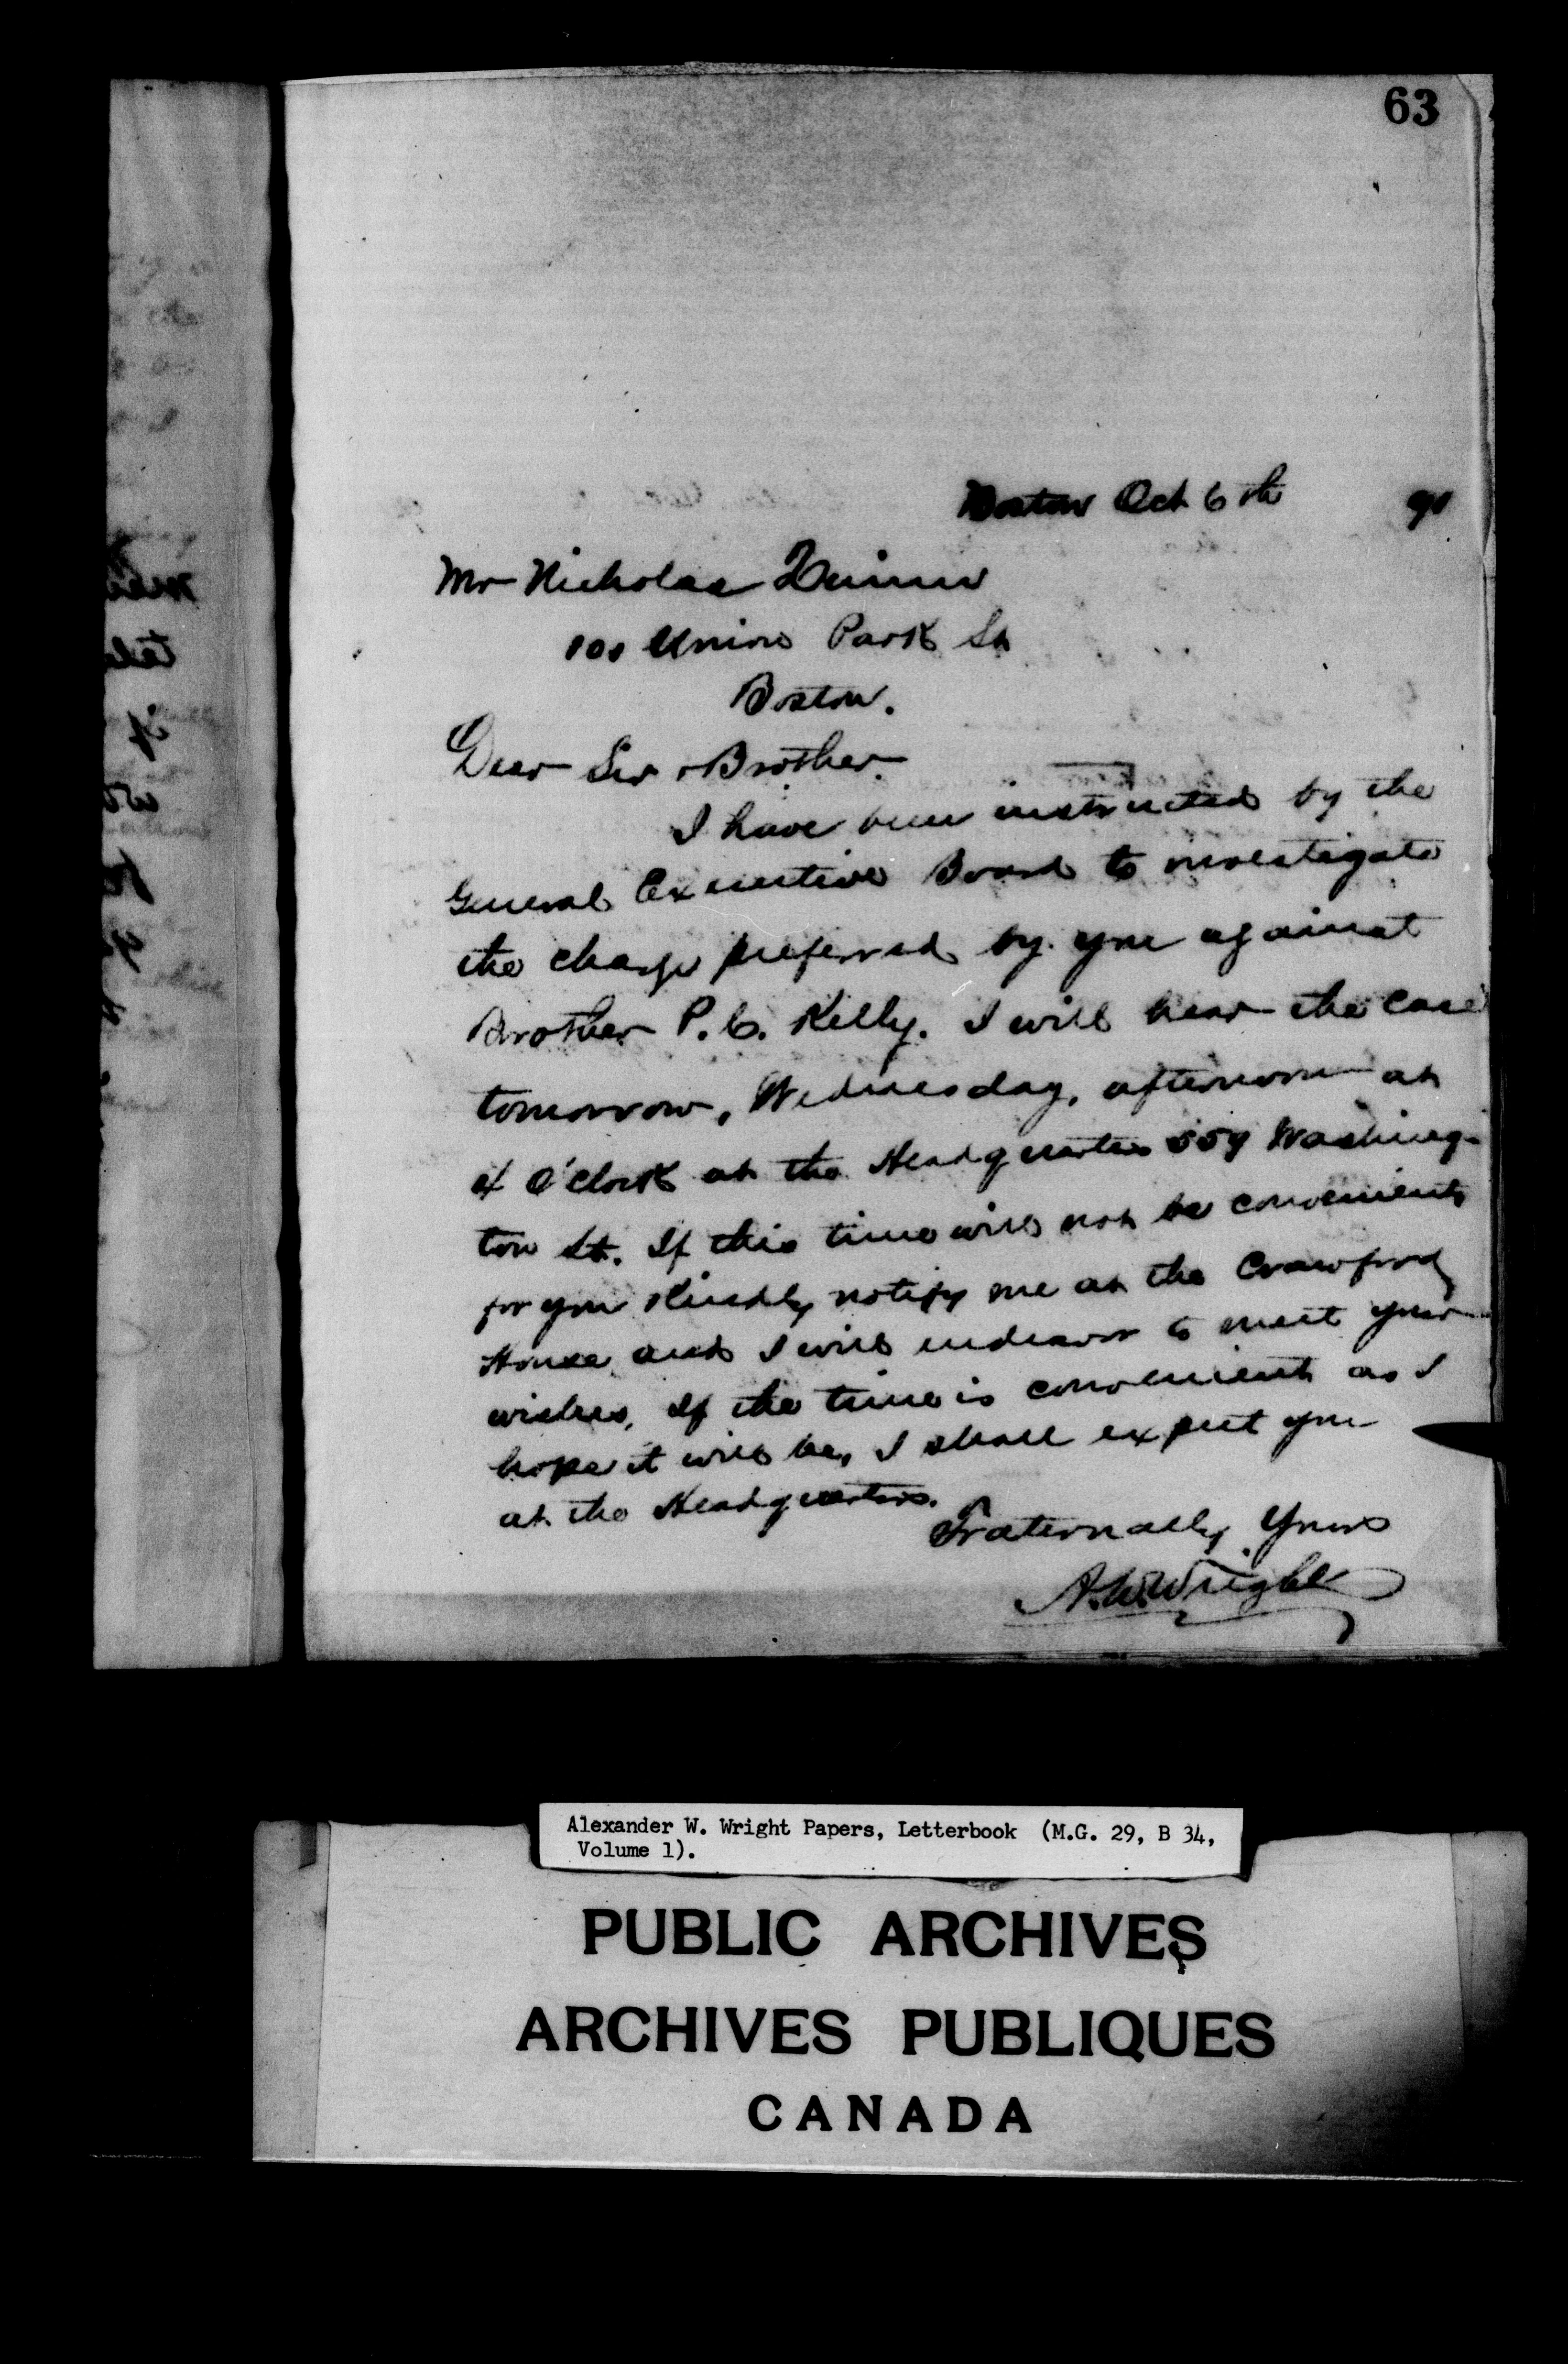 63
Boston Oct 6th 91
Mr Nicholas Quinn
101 Union Park St
Boston.
Dear Sir & Brother.
I have been instructed by the
General Executive Board to investigate
the charge preferred by you against
Brother P. C. Kelly. I will hear the case
tomorrow, Wednesday, afternoon at
4 O'Clock at the Headquarters 559 Washing-
ton St. If this time will not be convenient
for you kindly notify me at the Crawford
House and I will endeavor to meet your
wishes. If the time is convenient as I
hope it will be, I shall expect you
at the Headquarters.
Fraternally Yours
A. W. Wright
Alexander W. Wright Papers, Letterbook (M.G. 29, B 34,
Volume 1).
PUBLIC ARCHIVES
ARCHIVES PUBLIQUES
CANADA